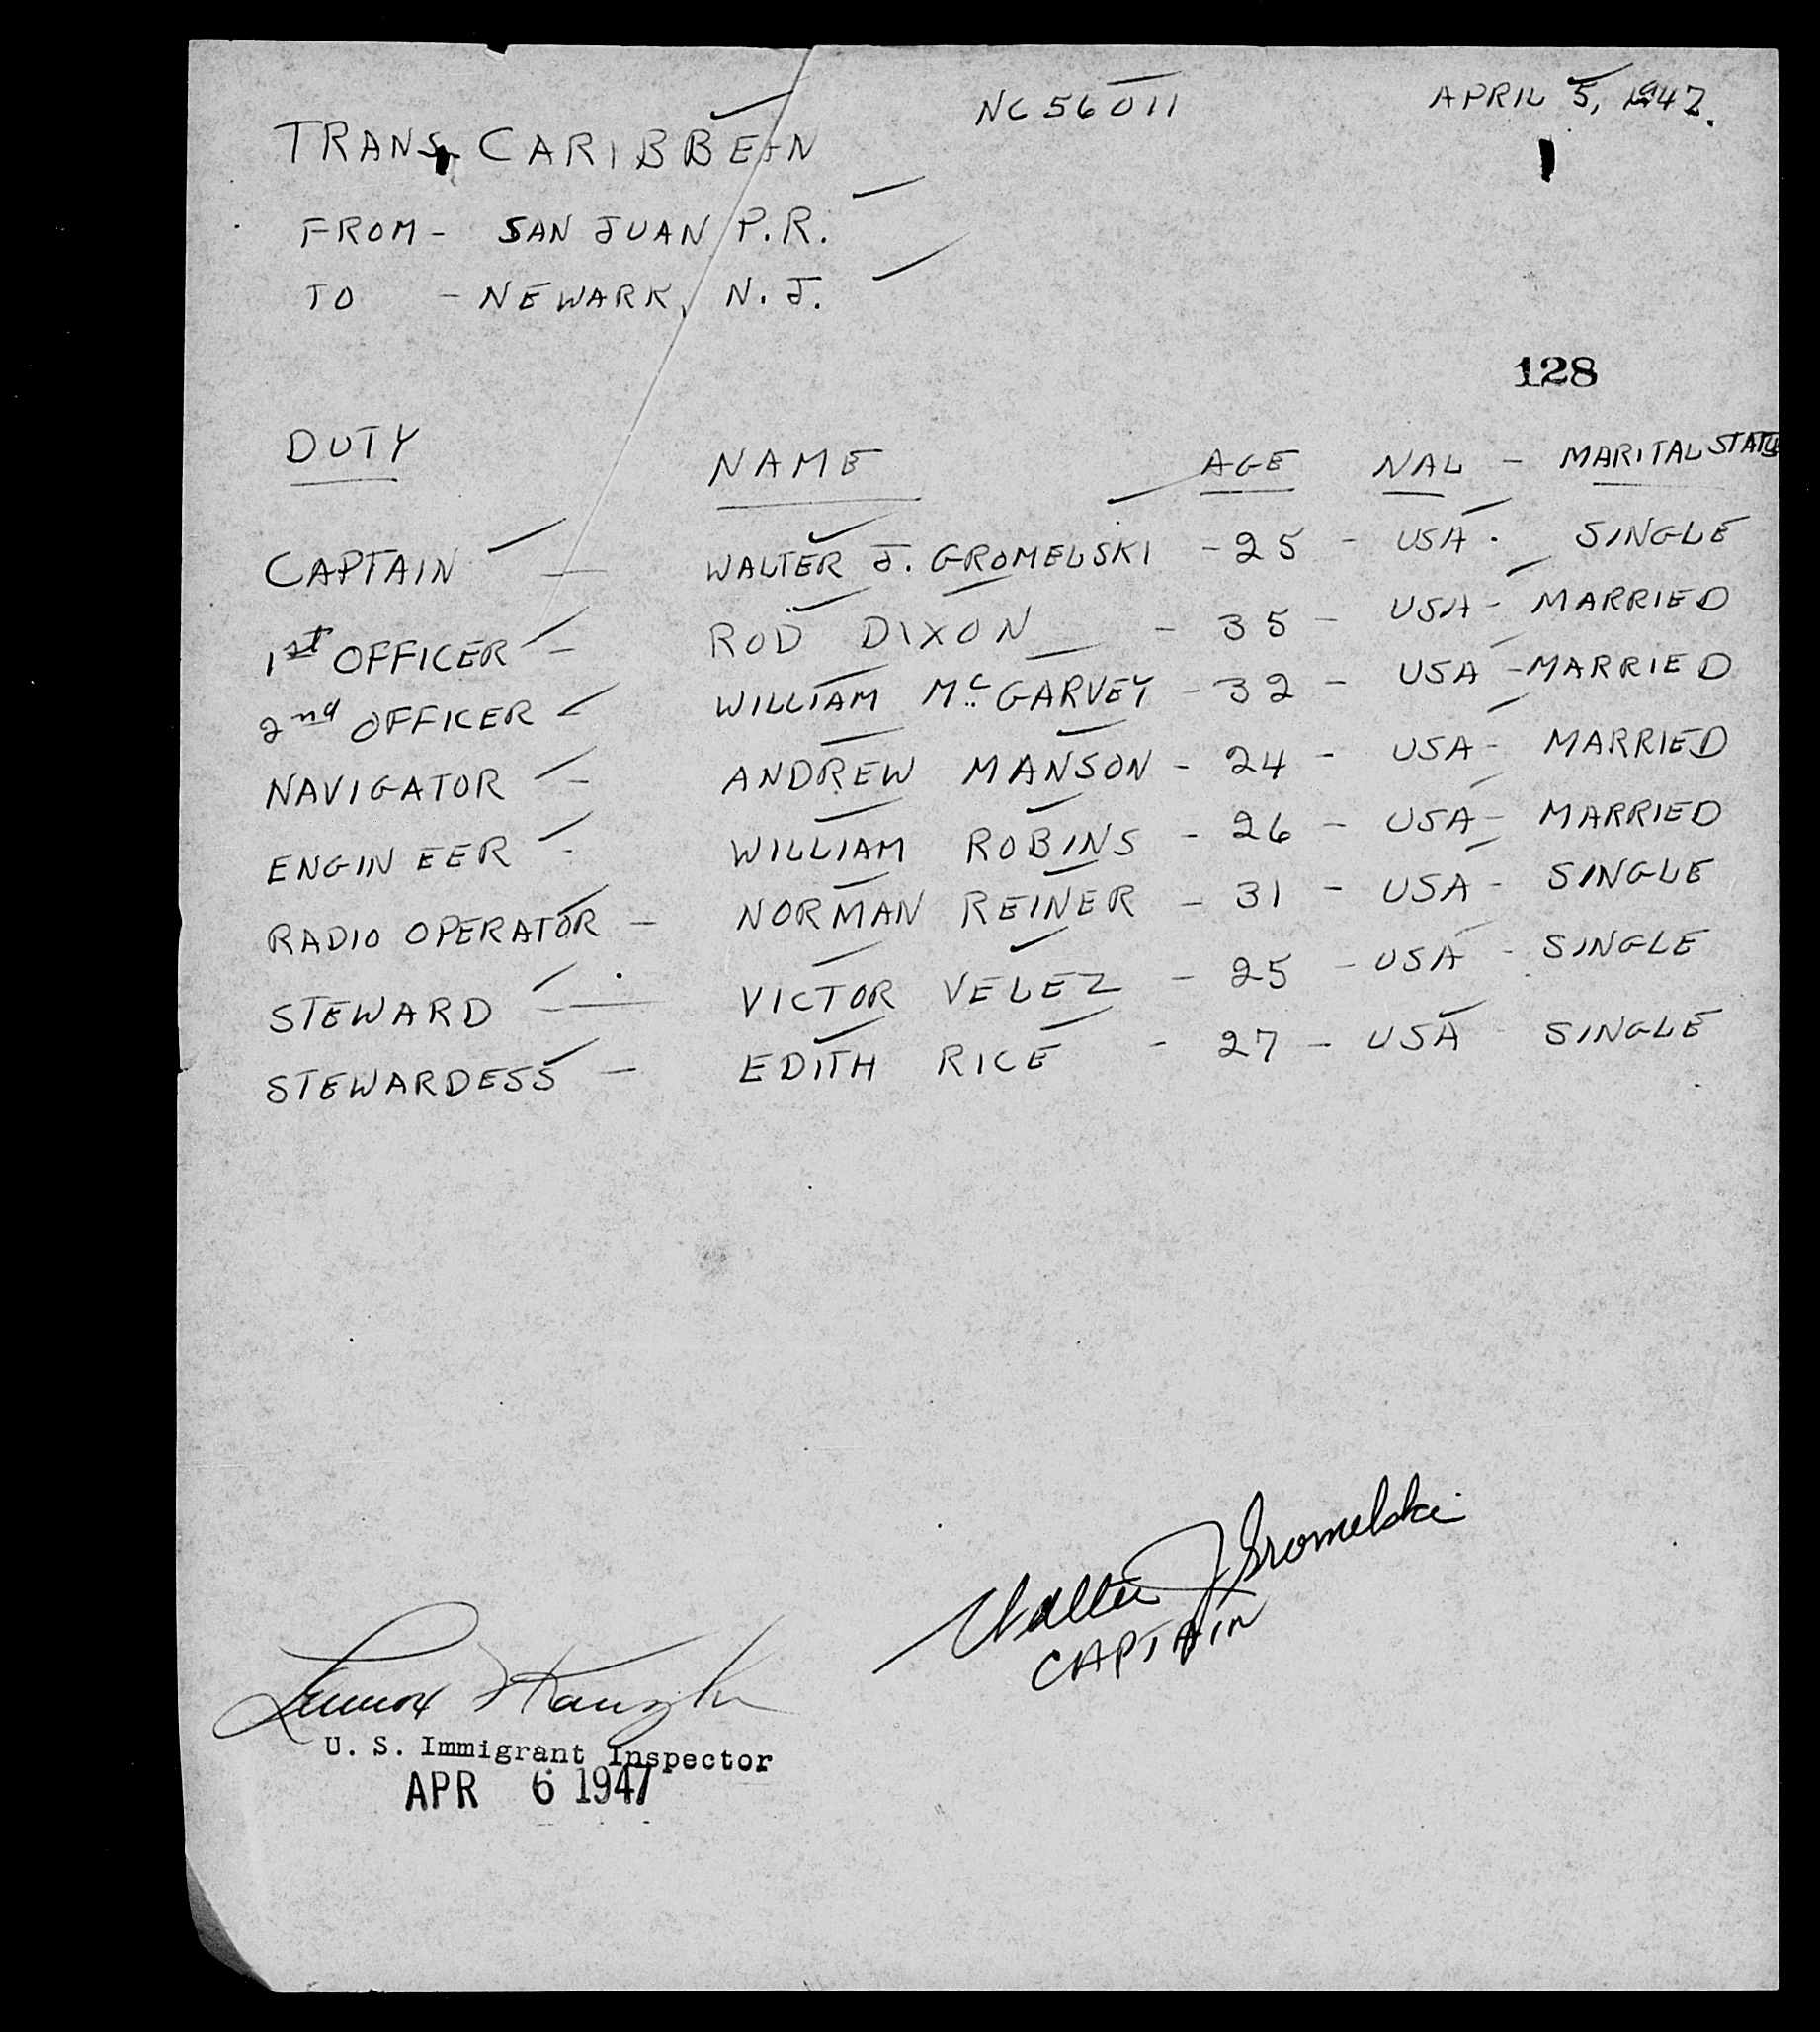 NC56011 APRIL 5, 1947.
TRANS CARIBBEAN
FROM - SAN JUAN P.R.
TO - NEWARK, N.J.
128
DUTY NAME AGE NAL - MARITAL STATUS
CAPTAIN — WALTER J. GROMELSKI - 25 - USA. SINGLE
1st OFFICER - ROD DIXON - 35 - USA - MARRIED
2nd OFFICER - WILLIAM McGARVEY - 32 - USA - MARRIED
NAVIGATOR - ANDREW MANSON - 24 - USA - MARRIED
ENGINEER - WILLIAM ROBINS - 26 - USA - MARRIED
RADIO OPERATOR - NORMAN REINER - 31 - USA - SINGLE
STEWARD — VICTOR VELEZ - 25 - USA - SINGLE
STEWARDESS - EDITH RICE - 27 - USA - SINGLE
Walter J Gromelski
CAPTAIN
U. S. Immigrant Inspector
APR 6 1947